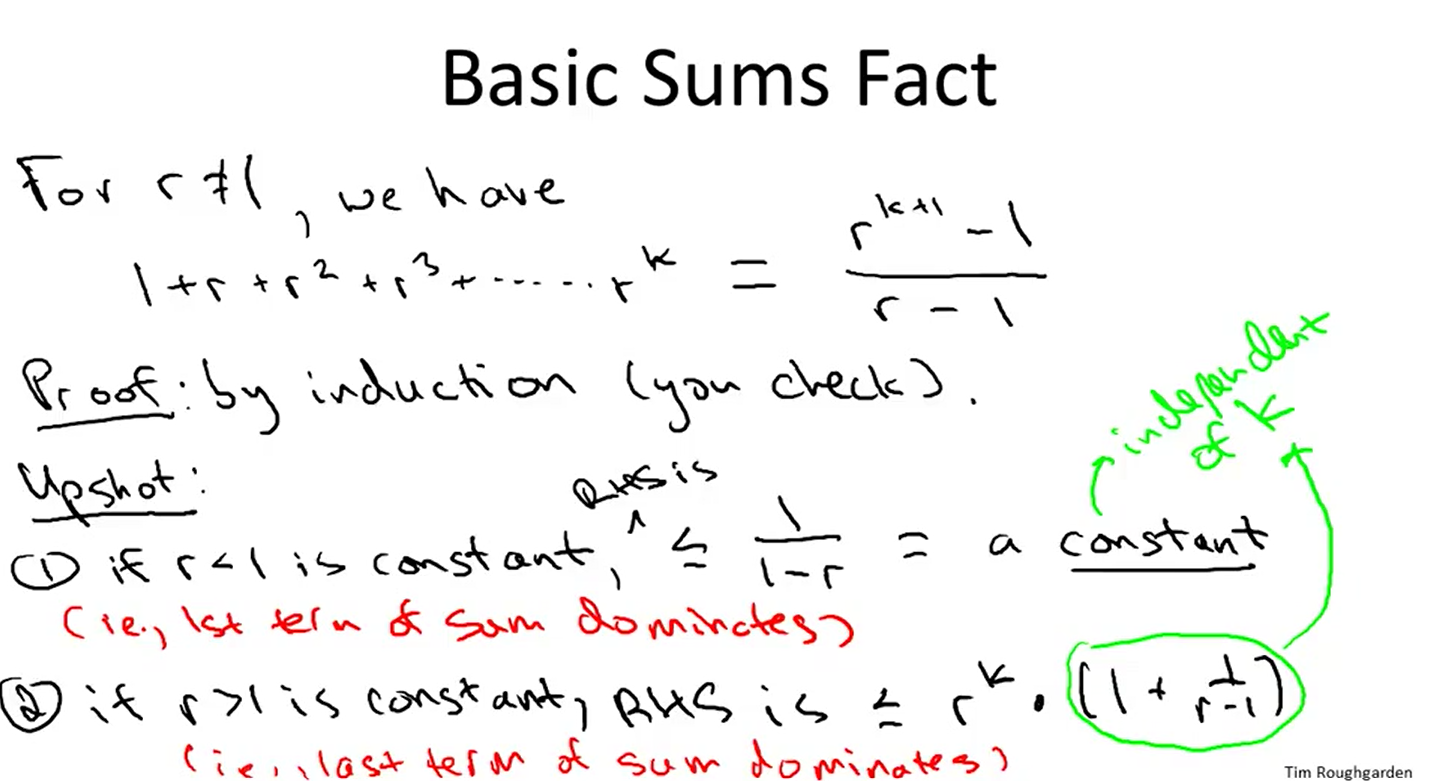 Basic Sums Fact
For r ≠ 1, we have
1 + r + r² + r³ + ...... r^k = (r^(k+1) - 1) / (r - 1)
Proof: by induction (you check).
independent
of k
Upshot:
RHS is
① if r < 1 is constant, ^ ≤ 1 / (1-r) = a constant
(i.e., 1st term of sum dominates)
② if r > 1 is constant, RHS is ≤ r^k · (1 + 1/(r-1))
(i.e., last term of sum dominates)
Tim Roughgarden